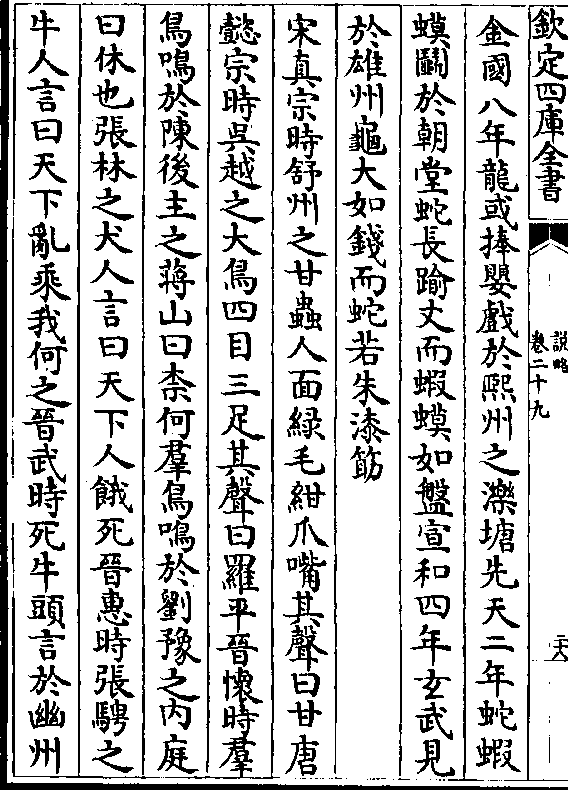 欽定四庫全書
說略
卷二十九
金國八年龍或捧嬰戲於熙州之濼塘先天二年蛇蝦
蟆鬬於朝堂蛇長踰丈而蝦蟆如盤宣和四年玄武見
於雄州龜大如錢而蛇若朱漆筯
宋真宗時舒州之甘蟲人面綠毛紺爪嘴其聲曰甘唐
懿宗時吳越之大鳥四目三足其聲曰羅平晉懷時羣
鳥鳴於陳後主之蔣山曰柰何羣鳥鳴於劉豫之內庭
曰休也張林之犬人言曰天下人餓死晉惠時張騁之
牛人言曰天下亂乘我何之晉武時死牛頭言於幽州